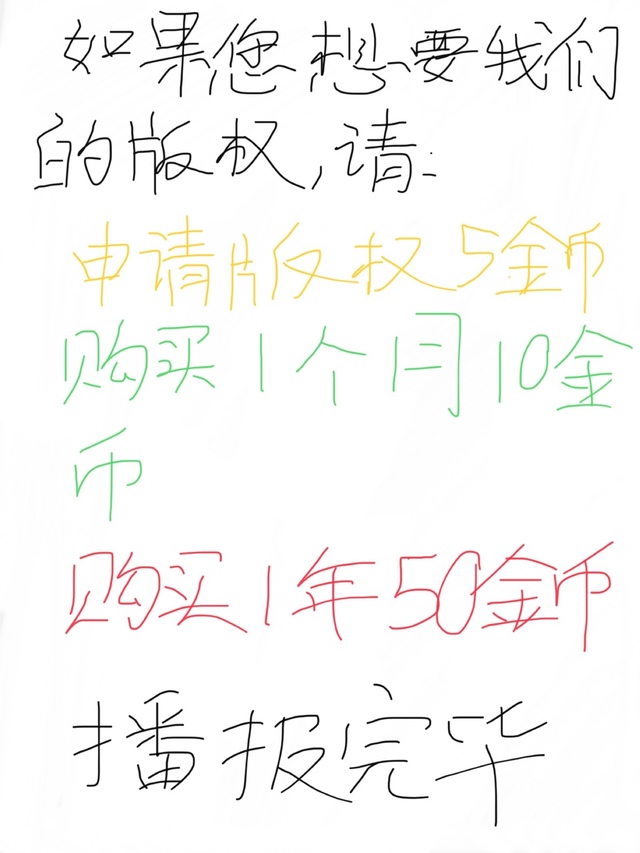 如果您想要我们
的版权,请:
申请版权5金币
购买1个月10金
币
购买1年50金币
播报完毕